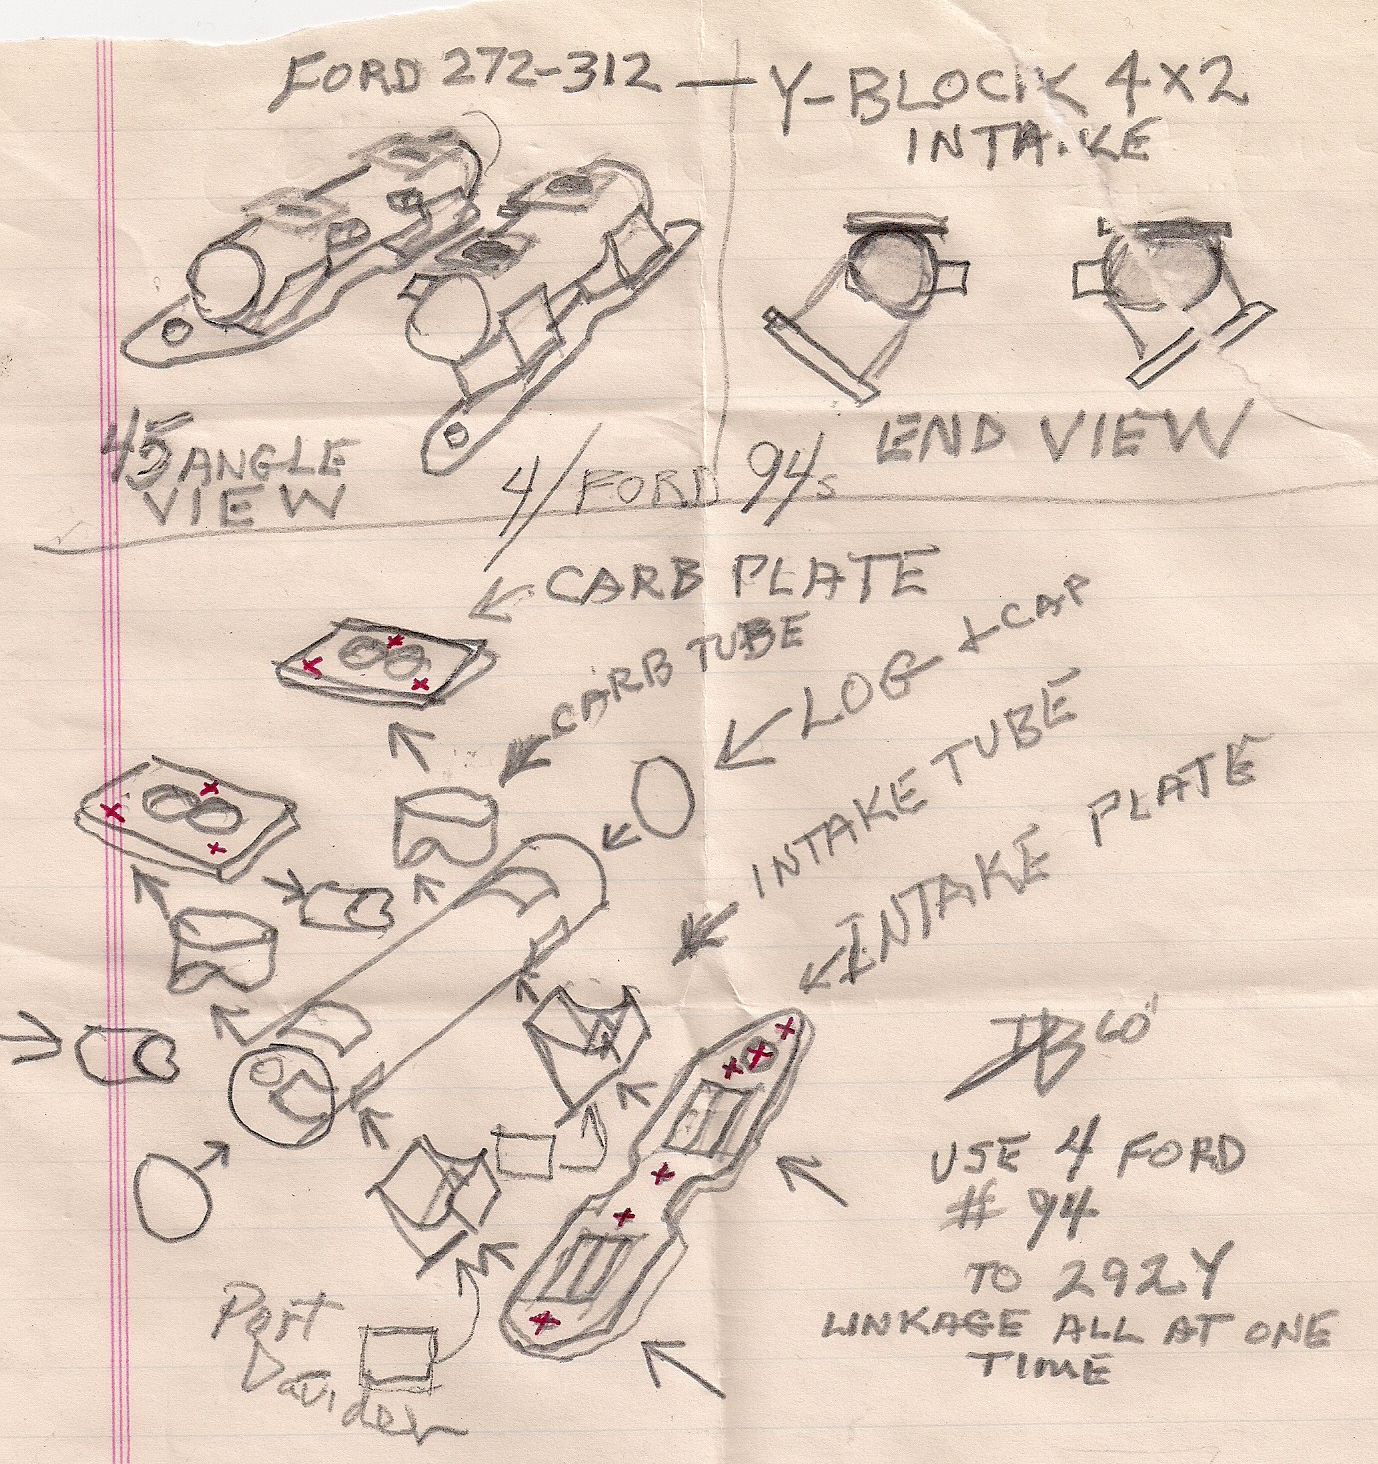 FORD 272-312 — Y-BLOCK 4X2
INTAKE
45 ANGLE
VIEW
END VIEW
4/FORD 94s
CARB PLATE
CARB TUBE
LOG & CAP
INTAKE TUBE
INTAKE PLATE
DB 60'
USE 4 FORD
# 94
TO 292Y
LINKAGE ALL AT ONE
TIME
Port